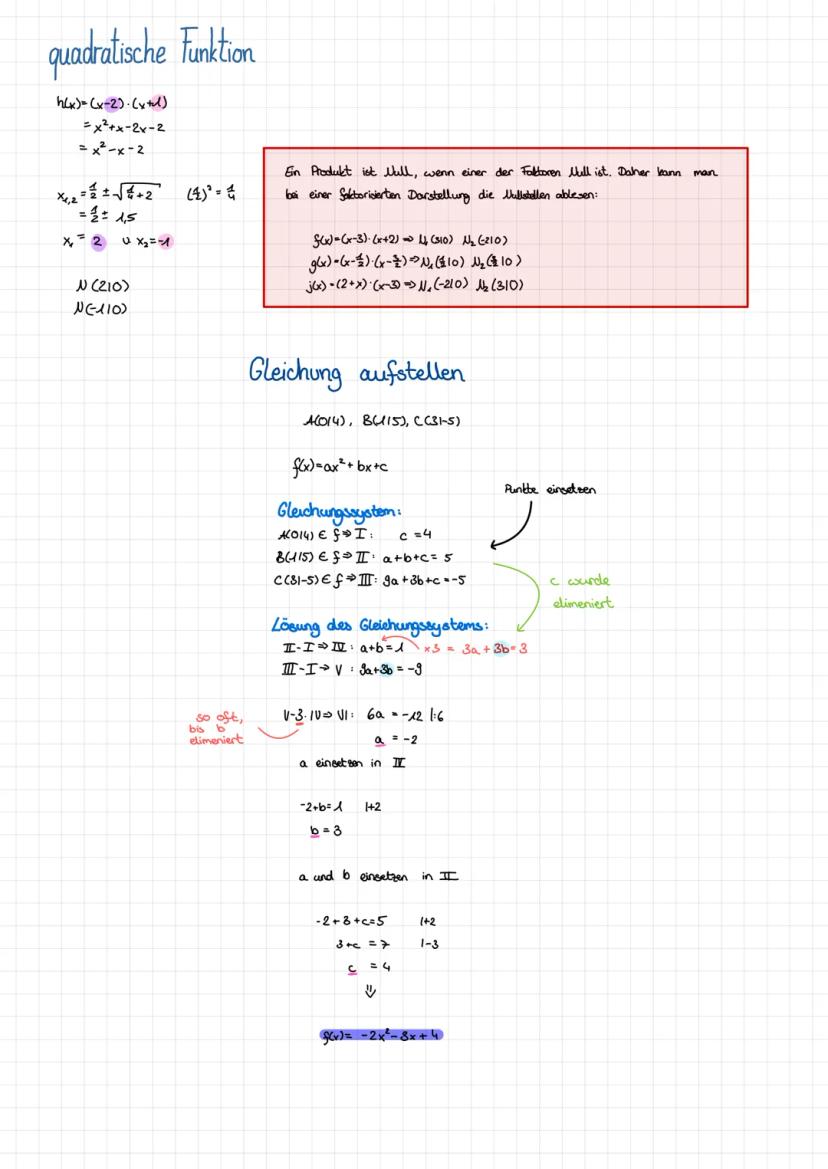 quadratische Funktion
h(x)=(x-2)·(x+1)
=x²+x-2x-2
=x²-x-2
x₁,₂=1/2±√(1/4+2) (1/2)²=1/4
=1/2±1,5
x₁=2 ∪ x₂=-1
N(2|0)
N(-1|0)
Ein Produkt ist Null, wenn einer der Faktoren Null ist. Daher kann man
bei einer faktorisierten Darstellung die Nullstellen ablesen:
f(x)=(x-3)·(x+2)⇒N₁(3|0) N₂(-2|0)
j(x)=(2+x)·(x-3)⇒N₁(-2|0) N₂(3|0)
Gleichung aufstellen
A(0|4), B(1|5), C(3|-5)
f(x)=ax²+bx+c
Punkte einsetzen
Gleichungssystem:
A(0|4) ∈ f⇒I: c=4
B(1|5) ∈ f⇒II: a+b+c=5
C(3|-5) ∈ f⇒III: 9a+3b+c=-5
c wurde
elimeniert
Lösung des Gleichungssystems:
II-I⇒IV: a+b=1 ×3 = 3a+3b=3
III-I⇒V: 9a+3b=-9
so oft,
bis b
elimeniert
V-3·IV⇒VI: 6a=-12 |:6
a=-2
a einsetzen in IV
-2+b=1 |+2
b=3
a und b einsetzen in II
-2+3+c=5 |+2
3+c=7 |-3
c=4
⇓
f(x)=-2x²-3x+4